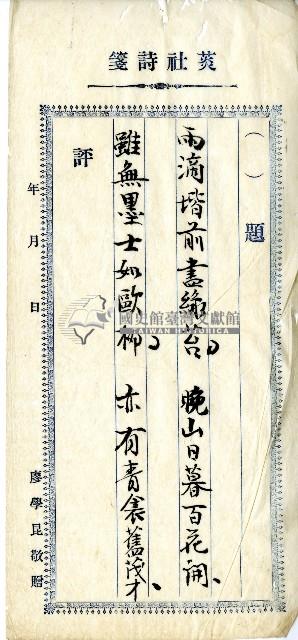 菼社詩箋
（ ）題
雨滴堦前盡綠苔 晚山日暮百花開
雖無墨士如歐柳 亦有青衾舊淺才
評
年 月 日
廖學昆敬贈
國史館臺灣文獻館
TAIWAN HISTORICA